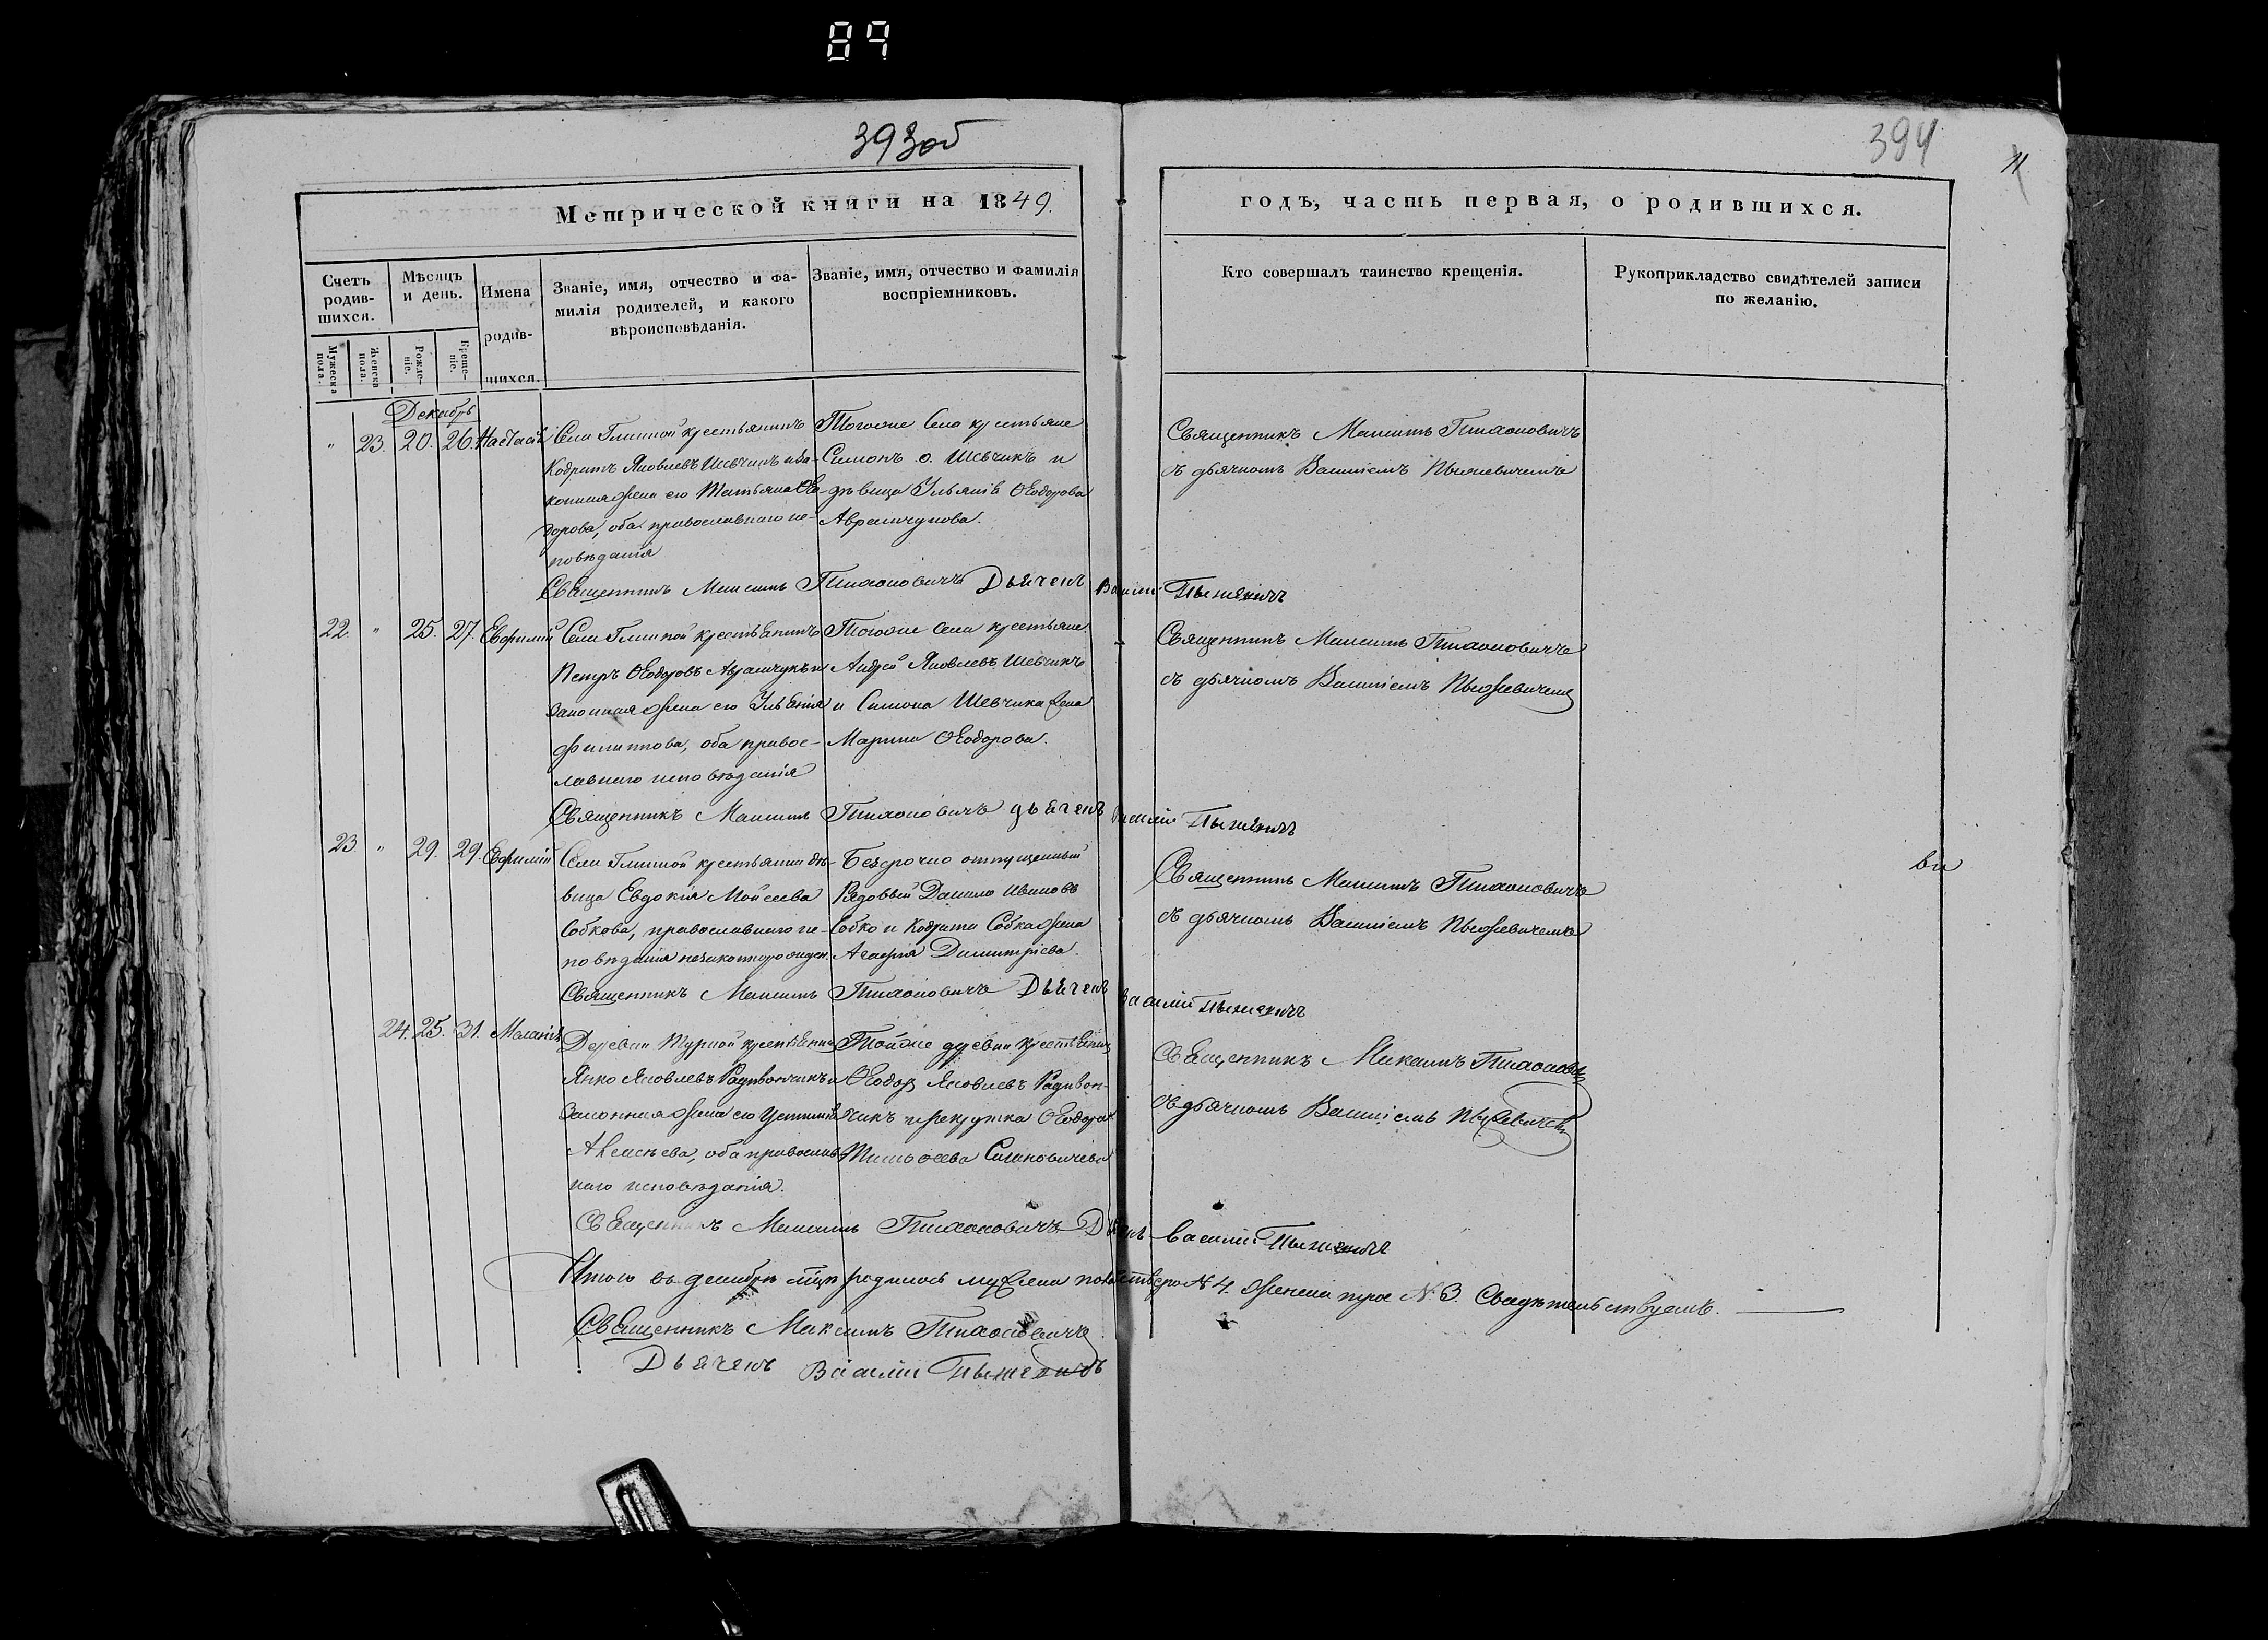 89
393об
394
11
Метрической книги на 1849.
годъ, часть первая, о родившихся.
Счетъ родив-шихся.
Мѣсяцъ и день.
Имена родив-шихся.
Званіе, имя, отчество и фа-
милія родителей, и какого
вѣроисповѣданія.
Званіе, имя, отчество и фамилія
воспріемниковъ.
Кто совершалъ таинство крещенія.
Рукоприкладство свидѣтелей записи
по желанію.
Мужеска пола.
Женска пола.
Рожде-ніе.
Креще-ніе.
Декабрь
" 23. 20. 26. Настасія
Села Глинной крестьянинъ
Кодратъ Яковлевъ Шевчикъ и за-
конная жена его Татьяна Ѳео-
дорова, оба православнаго ис-
повѣданія
Тогоже Села крестьяне
Симонъ Ѳ. Шевчикъ и
дѣвица Ульянія Ѳеодорова
Аврамчукова.
Священникъ Максимъ Тихоновичъ
съ дьячкомъ Василіемъ
Священникъ Максимъ Тихоновичъ Дьячекъ Василій
22. " 25. 27. Евфимій
Села Глинной крестьянинъ
Петръ Ѳеодоровъ Аврамчукъ и
законная жена его Ульянія
Филиппова, оба правос-
лавнаго исповѣданія
Тогоже Села крестьяне
Андрей Яковлевъ Шевчикъ
и Симона Шевчика жена
Марина Ѳеодорова.
Священникъ Максимъ Тихоновичъ
съ дьячкомъ Василіемъ
Священникъ Максимъ Тихоновичъ дьячекъ Василій
23 " 29. 29. Евфимій
Села Глинной крестьянка дѣ-
вица Евдокія Мойсеева
Собкова, православнаго ис-
повѣданія незаконнорожден.
Безсрочно отпущенный
Рядовый Данило Ивановъ
Собко и Кодрата Собка жена
Агафія Димитріева.
Священникъ Максимъ Тихоновичъ
съ дьячкомъ Василіемъ
Священникъ Максимъ Тихоновичъ Дьячекъ Василій
24. 25. 31. Меланія
Деревни Турной крестьянинъ
Янко Яковлевъ Радивончикъ и
Законная жена его Устинія
Алексѣева, оба православ-
наго исповѣданія.
Тойже деревни крестьянинъ
Ѳеодоръ Яковлевъ Радивон-
чикъ и рекрутка Ѳеодора
Тимоѳеева
Священникъ Максимъ Тихоновичъ
съ дьячкомъ Василіемъ
Священникъ Максимъ Тихоновичъ Дьячекъ Василій
Итого въ декабрѣ мѣсяцѣ родилось мужеска пола № 4. Женска трое № 3. Свидѣтельствуемъ.
Священникъ Максимъ Тихоновичъ
Дьячекъ Василій